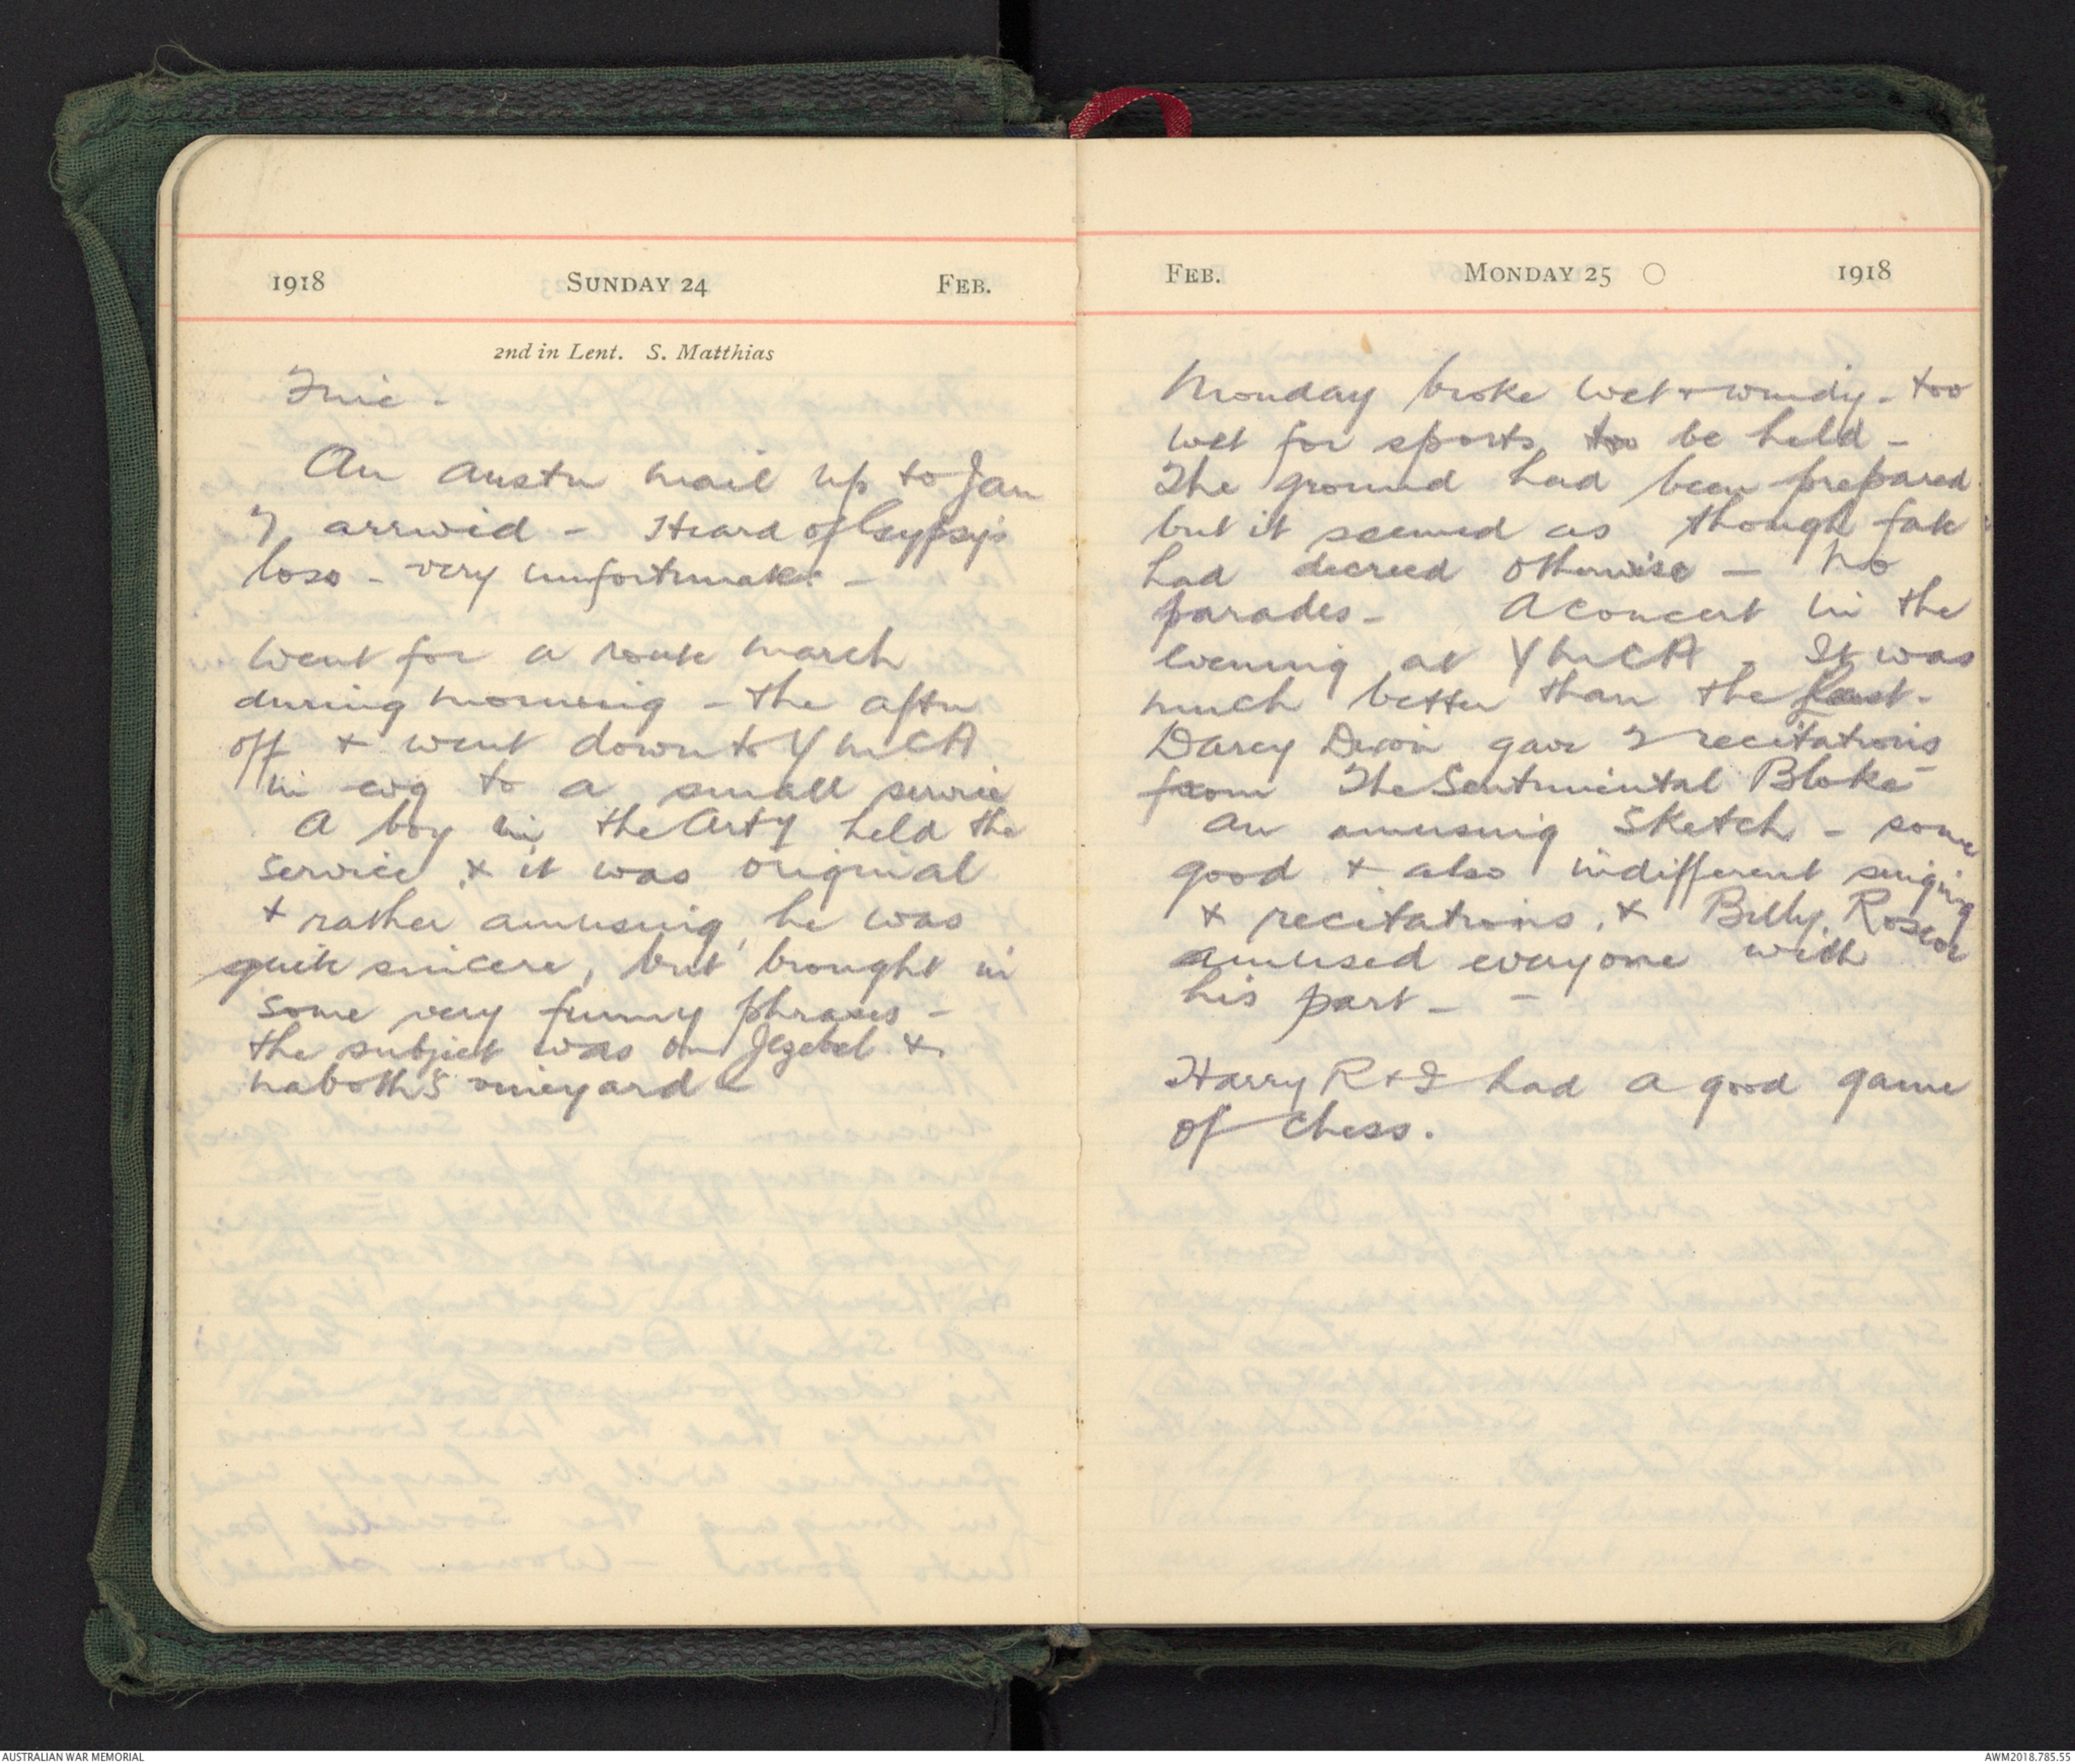 1918 SUNDAY 24 FEB.
2nd in Lent. S. Matthias
Fine -
An Austn mail up to Jan
7 arrived - Heard of Gypsy's
loss - very unfortunate -
Went for a route march
during morning - the aftn
off & went down to Y M C A
in evg to a small service
A boy in the Arty held the
service & it was original
& rather amusing, he was
quite sincere, but brought in
some very funny phrases -
the subject was on Jezebel &
naboth's vineyard -
FEB. MONDAY 25 1918
Monday broke wet & windy - too
wet for sports to be held -
The ground had been prepared
but it seemed as though fate
had decreed otherwise - No
parades - A concert in the
evening at Y M C A. It was
much better than the last -
Darcy Dixon gave 2 recitations
from The Sentimental Bloke -
an amusing sketch - some
good & also indifferent singing
& recitations, & Billy Roscoe
amused everyone with
his part - -
Harry R & I had a good game
of chess.
AUSTRALIAN WAR MEMORIAL
AWM2018.785.55